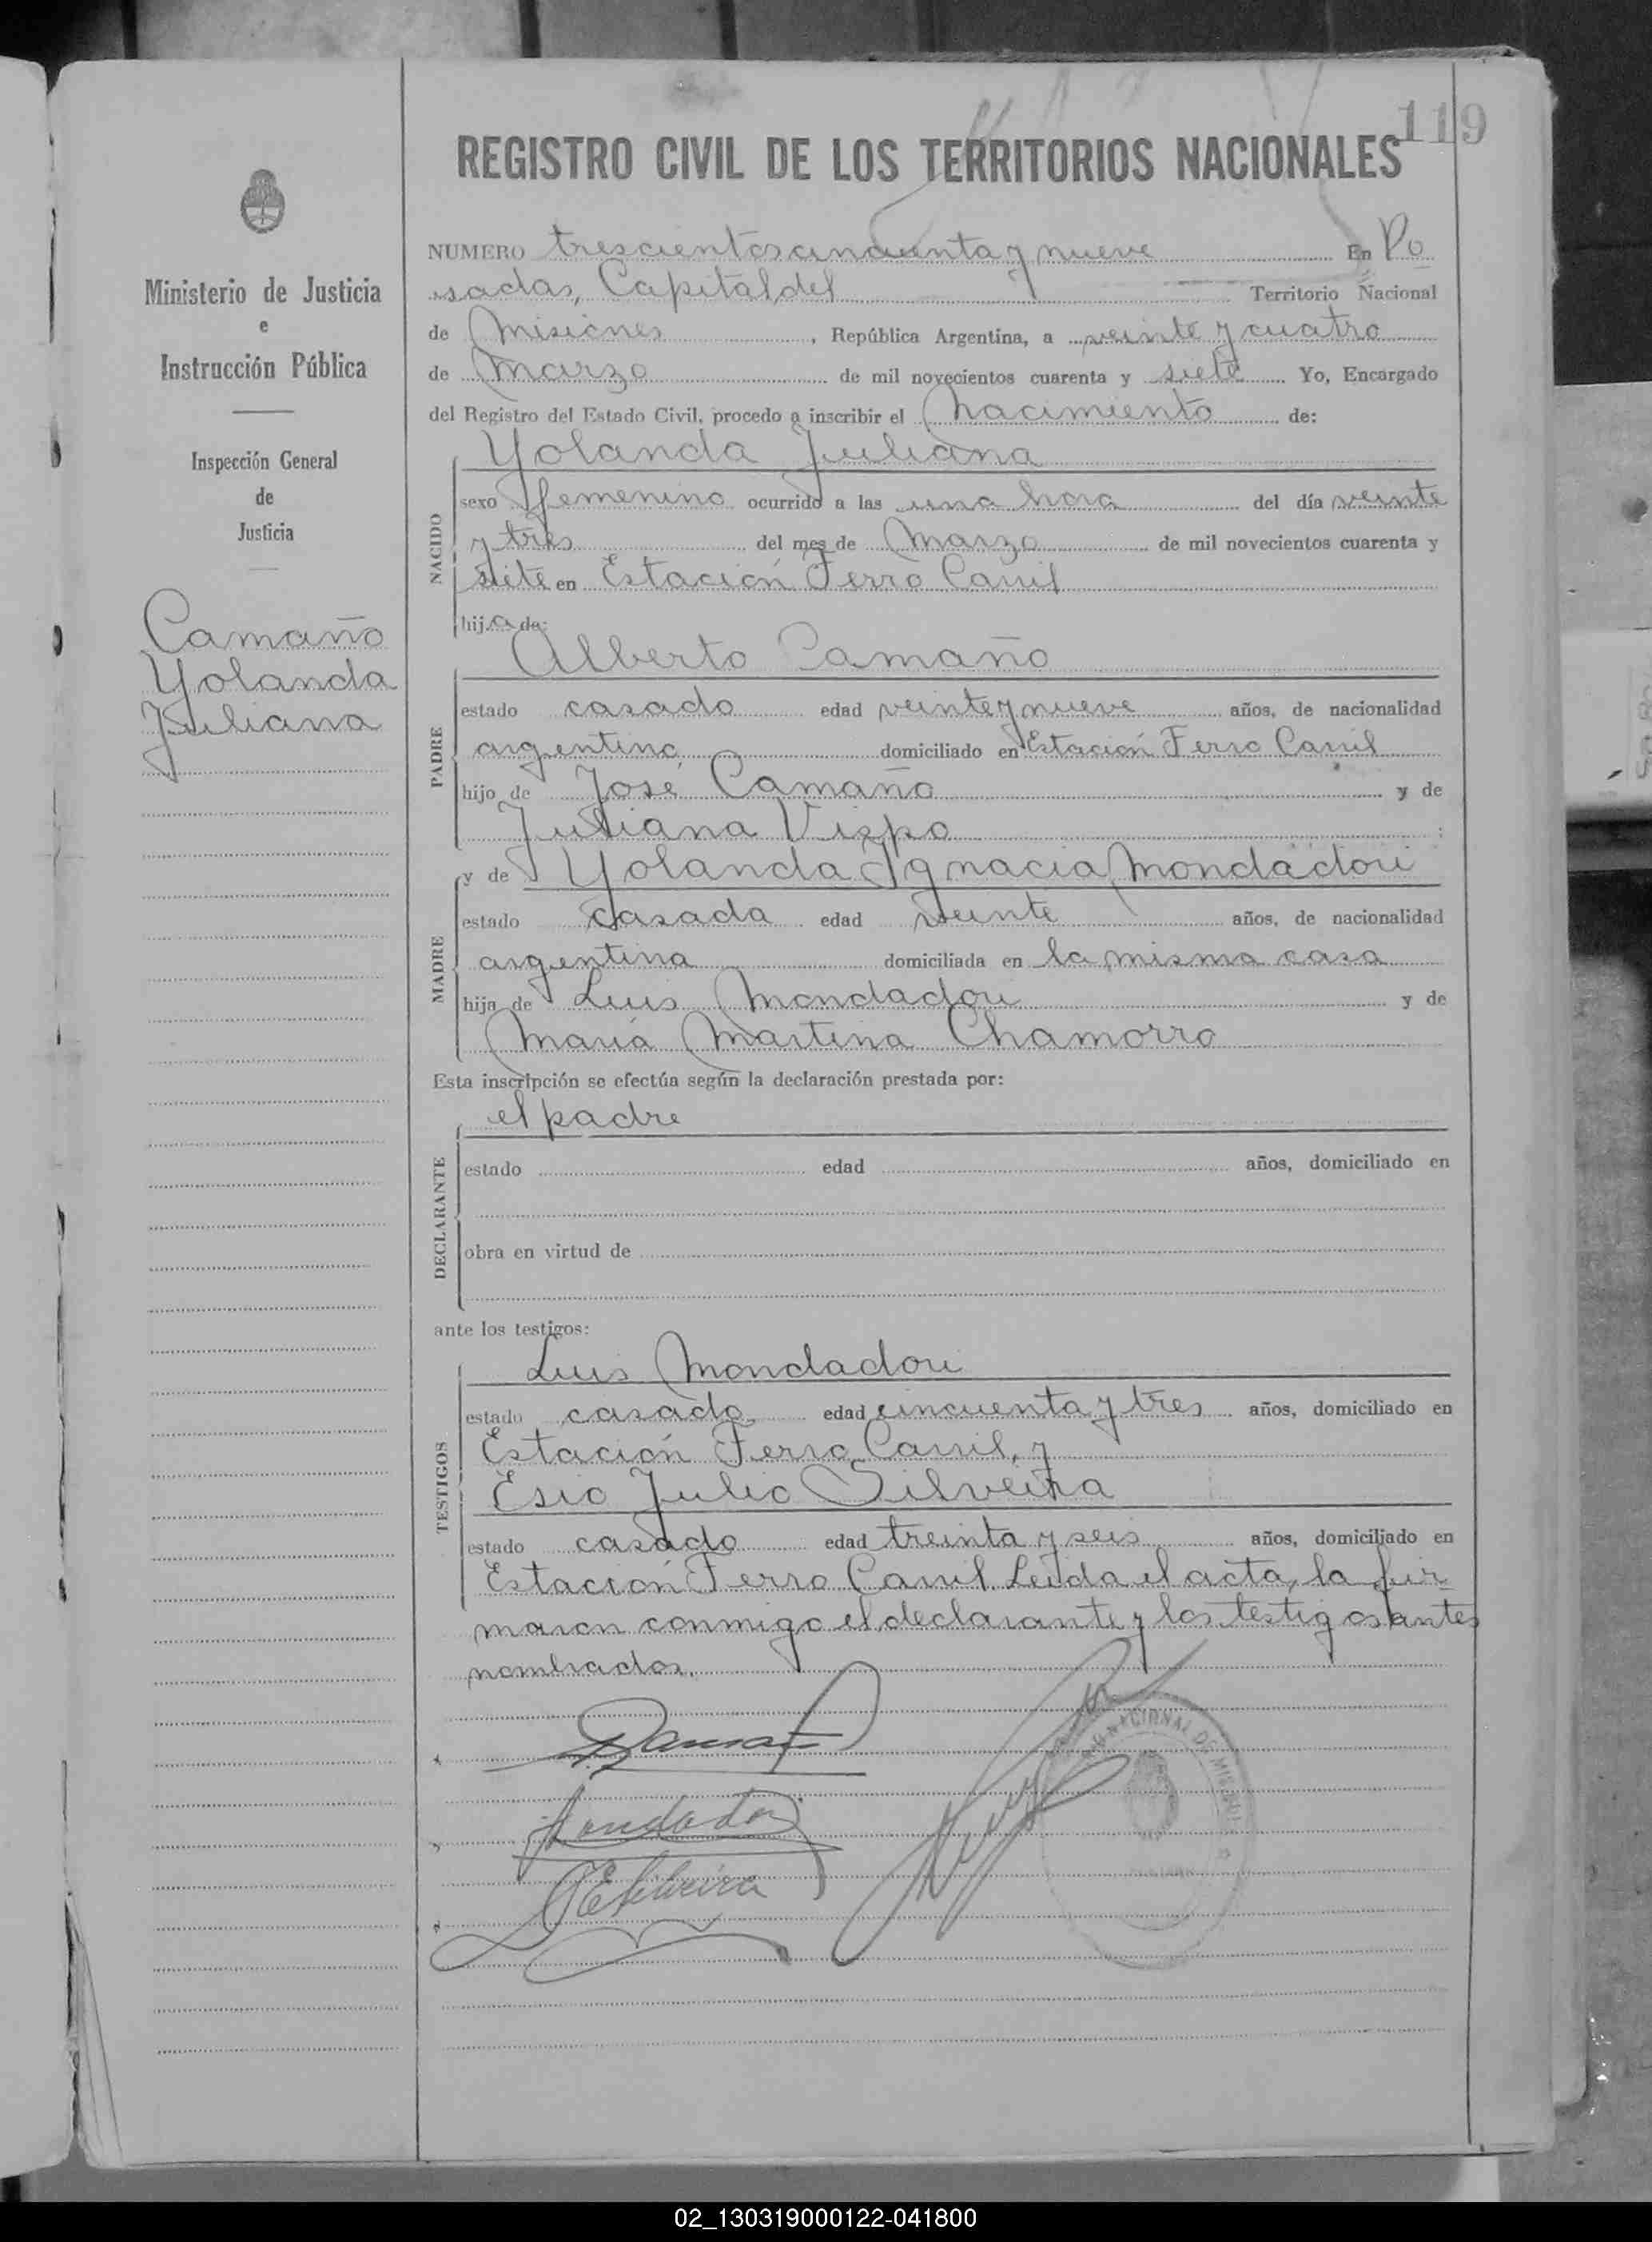 119
REGISTRO CIVIL DE LOS TERRITORIOS NACIONALES
Ministerio de Justicia
e
Instrucción Pública
Inspección General
de
Justicia
Camaño
Yolanda
Juliana
NUMERO trescientos cincuenta y nueve En Po
sadas, Capital del Territorio Nacional
de Misiones, República Argentina, a veinte y cuatro
de Marzo de mil novecientos cuarenta y siete Yo, Encargado
del Registro del Estado Civil, procedo a inscribir el nacimiento de:
NACIDO
Yolanda Juliana
sexo femenino ocurrido a las una hora del día veinte
y tres del mes de Marzo de mil novecientos cuarenta y
siete en Estación Ferro Carril
hija de:
PADRE
Alberto Camaño
estado casado edad veinte y nueve años, de nacionalidad
argentino domiciliado en Estación Ferro Carril
hijo de José Camaño y de
Juliana Vispo ;
MADRE
y de Yolanda Ignacia Mondadori
estado casada edad veinte años, de nacionalidad
argentina domiciliada en la misma casa
hija de Luis Mondadori y de
María Martina Chamorro
Esta inscripción se efectúa según la declaración prestada por:
DECLARANTE
el padre
estado edad años, domiciliado en
obra en virtud de
ante los testigos:
TESTIGOS
Luis Mondadori
estado casado edad cincuenta y tres años, domiciliado en
Estación Ferro Carril, y
Esio Julio Silveira
estado casado edad treinta y seis años, domiciliado en
Estación Ferro Carril Leída el acta, la fir-
maron conmigo el declarante y los testigos antes
nombrados.
NACIONAL DE
02_130319000122-041800